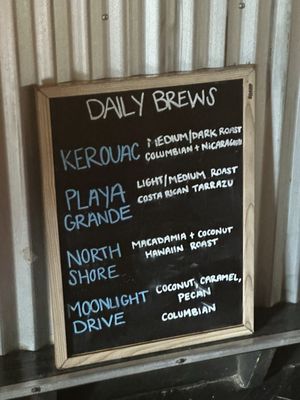 DAILY BREWS
KEROUAC MEDIUM/DARK ROAST
COLUMBIAN + NICARAGUAN
PLAYA GRANDE LIGHT/MEDIUM ROAST
COSTA RICAN TARRAZU
NORTH SHORE MACADAMIA + COCONUT
HAWAIIN ROAST
MOONLIGHT DRIVE COCONUT, CARAMEL,
PECAN
COLUMBIAN